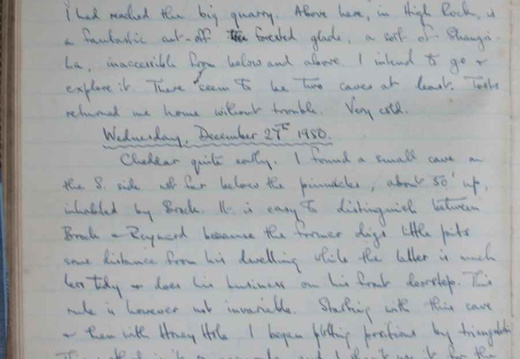 I had reached the big quarry. Above here, in High Rock, is
a fantastic cut-off forested glade, a sort of Shangri-
La, inaccessible from below and above. I intend to go &
explore it. There seem to be two caves at least.
returned me home without trouble. Very cold.
Wednesday, December 27th 1950.
Cheddar quite early. I found a small cave on
the S. side not far below the pinnacles, about 50' up,
inhabited by Brock. It is easy to distinguish between
Brock & Reynard because the former digs little pits
some distance from his dwelling while the latter is much
less tidy & does his business on his front doorstep. This
rule is however not invariable. Starting with this cave
& then with Honey Hole I began plotting positions by triangulation